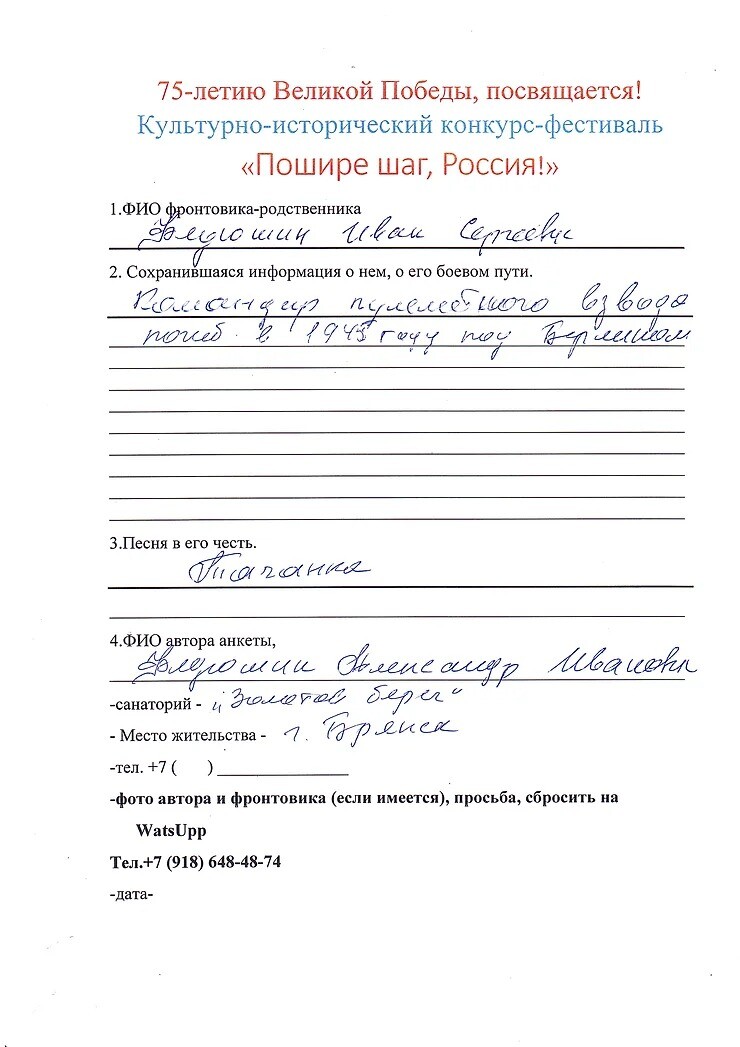 75-летию Великой Победы, посвящается!
Культурно-исторический конкурс-фестиваль
«Пошире шаг, Россия!»
1.ФИО фронтовика-родственника
Иван Сергеевич
2. Сохранившаяся информация о нем, о его боевом пути.
Командир пулеметного взвода
погиб в 1945 году под Берлином
3.Песня в его честь.
Тачанка
4.ФИО автора анкеты,
Александр Иванович
-санаторий - "Золотой берег"
- Место жительства - г. Брянск
-тел. +7 ( ) ______________
-фото автора и фронтовика (если имеется), просьба, сбросить на
WatsUpp
Тел.+7 (918) 648-48-74
-дата-